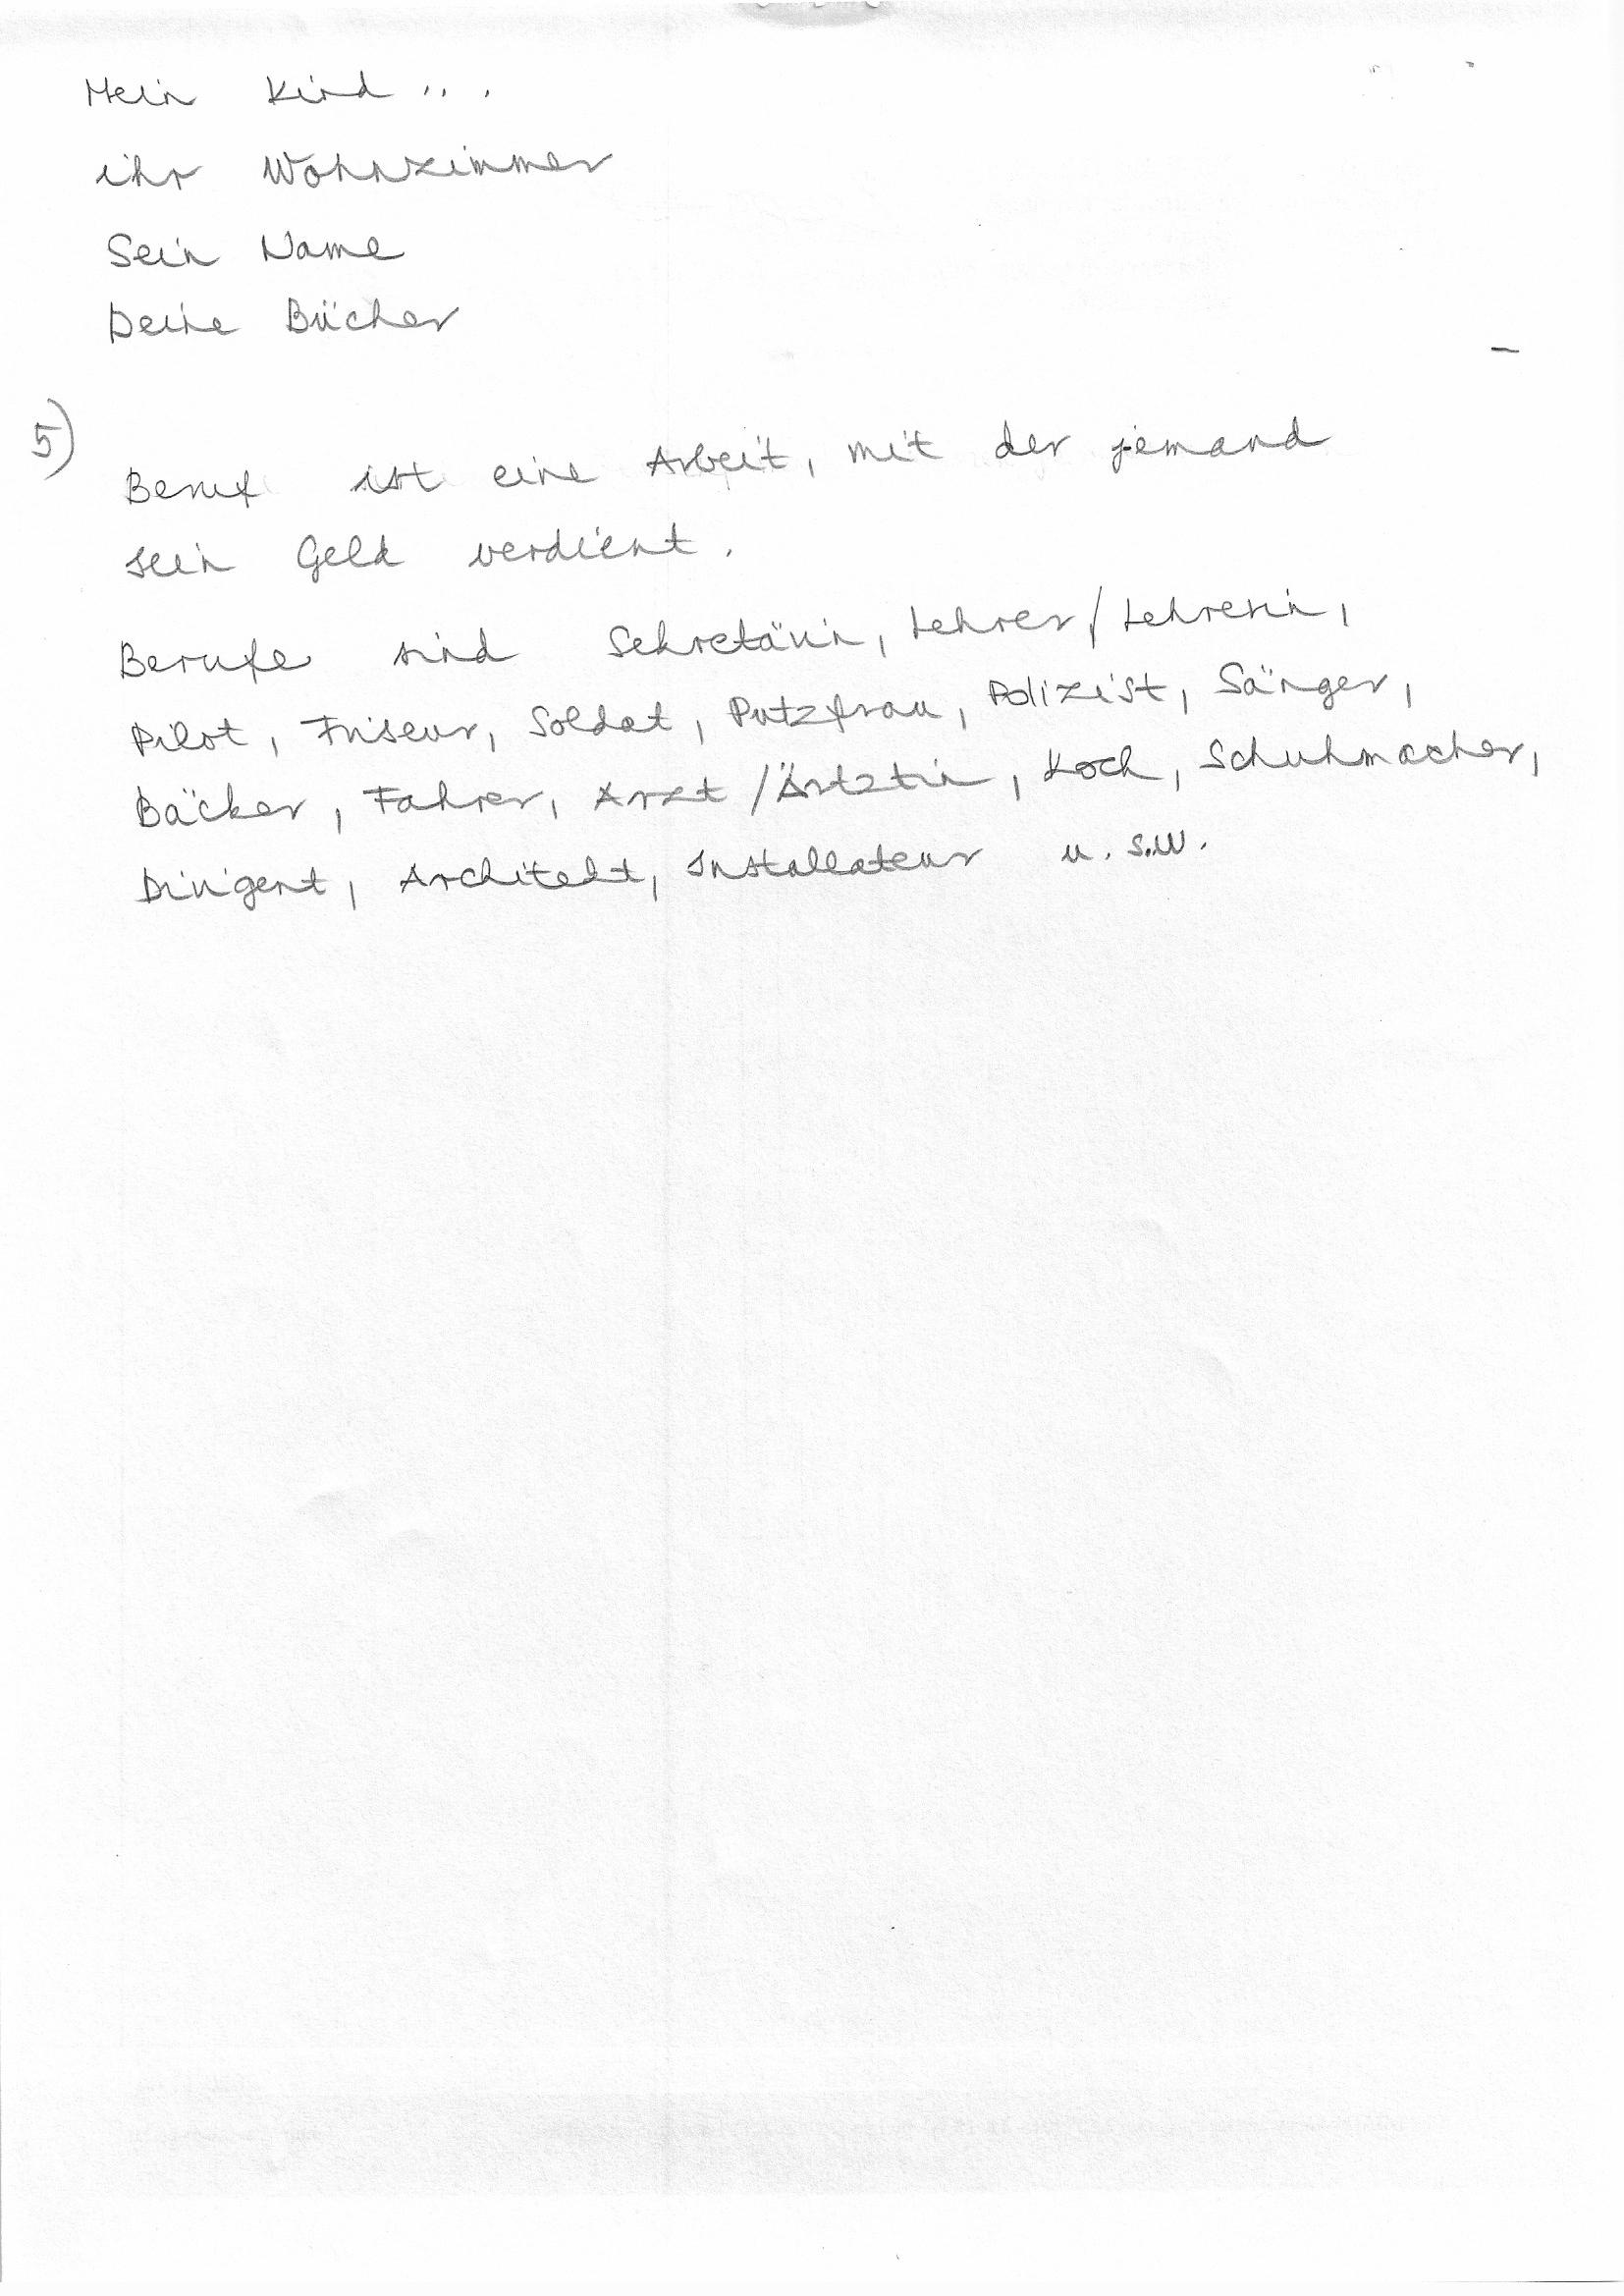 Mein Kind ...
ihr Wohnzimmer
Sein Name
Deine Bücher
5)
Beruf ist eine Arbeit, mit der jemand
sein Geld verdient.
Berufe sind Sekretärin, Lehrer/Lehrerin,
Pilot, Friseur, Soldat, Putzfrau, Polizist, Sänger,
Bäcker, Fahrer, Arzt/Ärtztin, Koch, Schuhmacher,
Dirigent, Architekt, Installateur u.s.w.